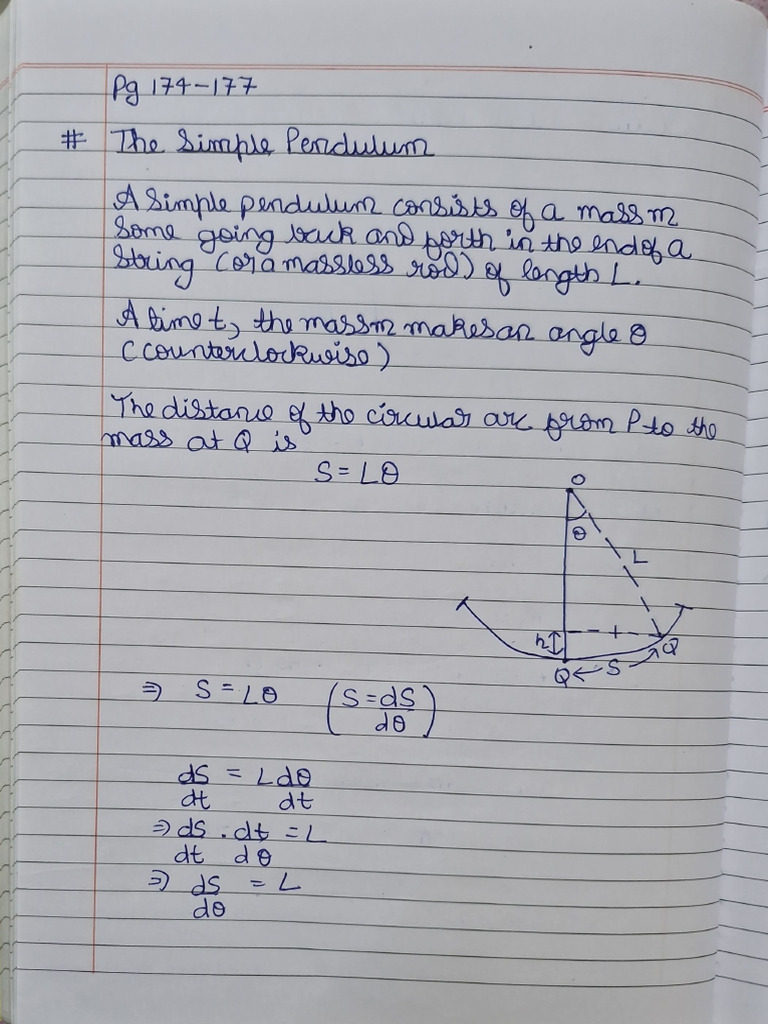 Pg 174-177
# The Simple Pendulum
A Simple pendulum consists of a mass m
Some going back and forth in the end of a
String (or a massless rod) of length L.
A time t, the mass m makes an angle θ
(counterclockwise)
The distance of the circular arc from P to the
mass at Q is
S = Lθ
O
θ
L
h
Q
Q ← S →
⇒ S = Lθ (S = dS/dθ)
dS/dt = L dθ/dt
⇒ dS/dt . dt/dθ = L
⇒ dS/dθ = L